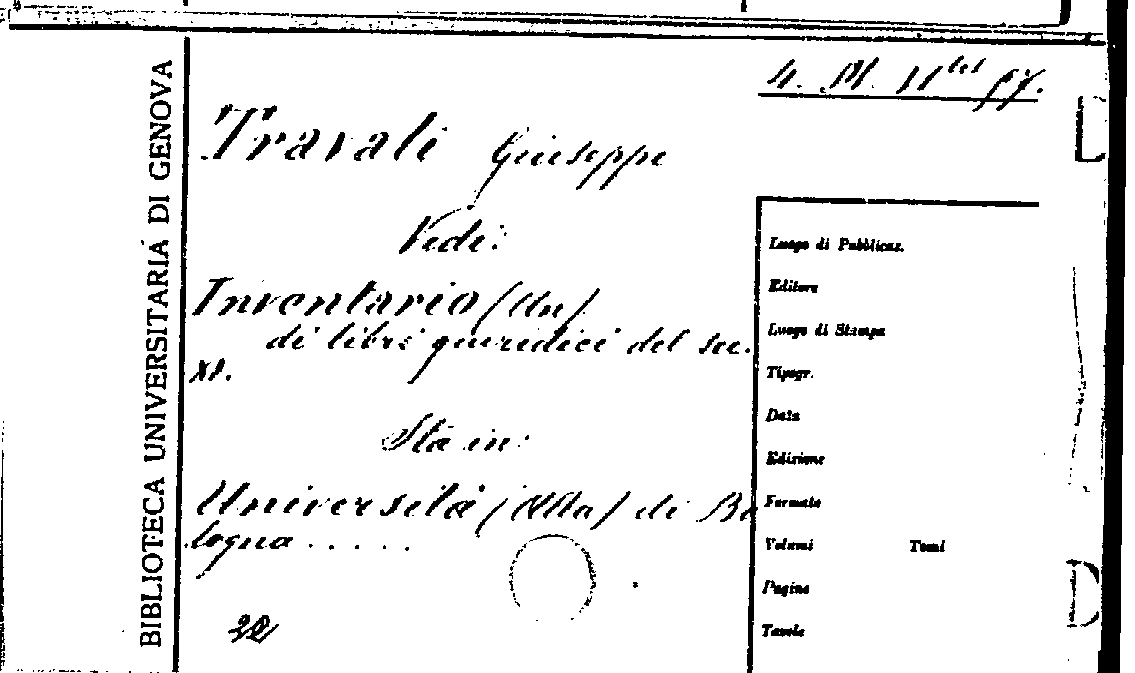 BIBLIOTECA UNIVERSITARIA DI GENOVA
Travali Giuseppe
Vedi:
Inventario (Un)
di libri giuridici del sec.
XV.
Sta in:
Università (Alla) di Bo
logna . . . . .
Luogo di Pubblicaz.
Editore
Luogo di Stampa
Tipogr.
Data
Edizione
Formato
Volumi Tomi
Pagine
Tavole